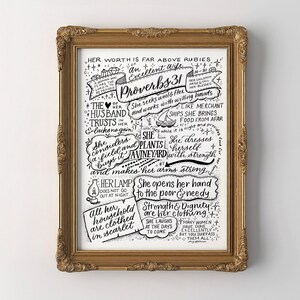 HER WORTH IS FAR ABOVE RUBIES
An Excellent Wife
Proverbs 31
She seeks wool & flax
and works with willing hands
THE HEART OF HER
HUSBAND
TRUSTS IN HER
& lacks no gain
LIKE MERCHANT
SHIPS SHE BRINGS
FOOD FROM AFAR
She considers
a field and
buys it
SHE
PLANTS
A VINEYARD
She dresses
herself
with strength
and makes her arms strong
HER LAMP
DOES NOT GO
OUT AT NIGHT
She opens her hand
to the poor & needy
All her
household
are clothed
in scarlet
Strength & Dignity
are her clothing
SHE LAUGHS
AT THE DAYS
TO COME
MANY WOMEN
HAVE DONE
EXCELLENTLY
BUT YOU SURPASS
THEM ALL